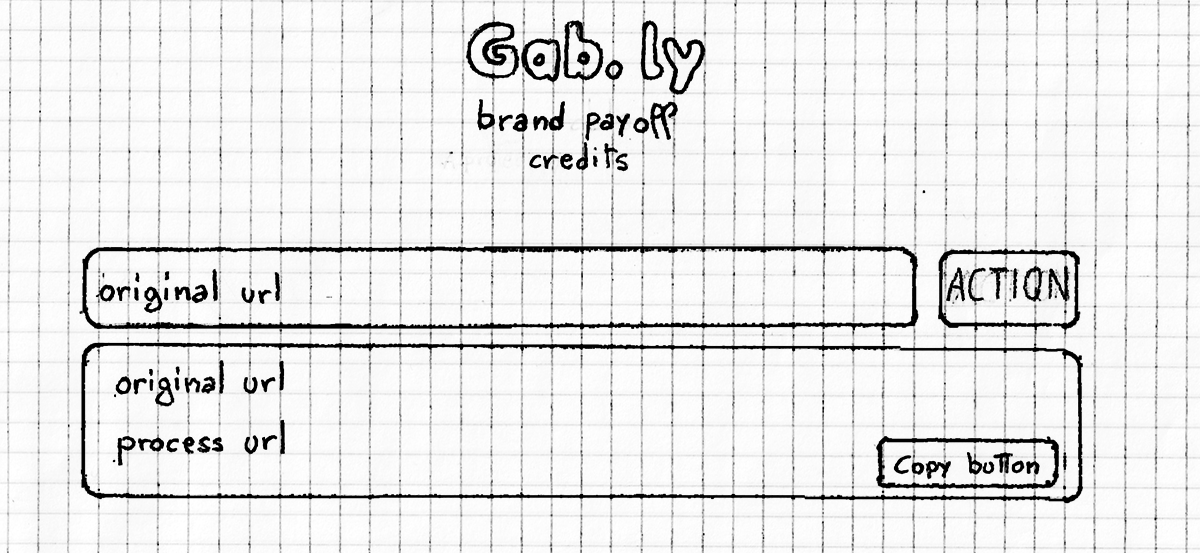 Gab.ly
brand payoff
credits
original url
ACTION
original url
process url
Copy button